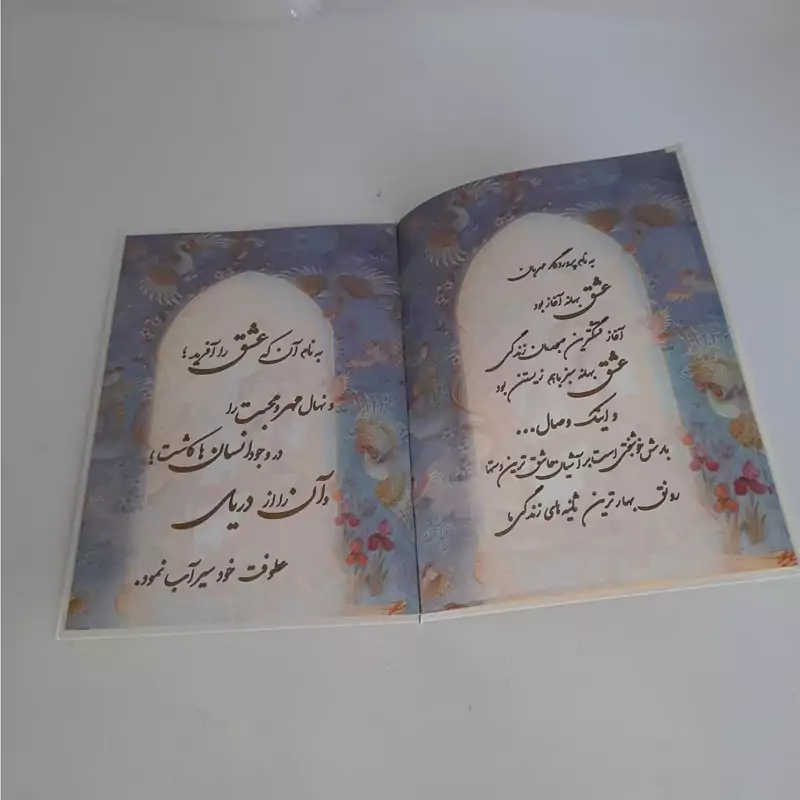 به نام پروردگار مهربان
عشق بهانه آغاز بود
آغاز قشنگترین همدمان زندگی
عشق بهانه سبز باهم زیستن بود
و اینک وصال...
بارش خوشبختی است بر آشیان عاشق ترین دستها
رونق بهارترین ثانیه های زندگی ما
به نام آن که عشق را آفرید؛
و نهال مهر و محبت را
در وجود انسان ها کاشت؛
و آن را از دریای
علوفت خود سیرآب نمود.